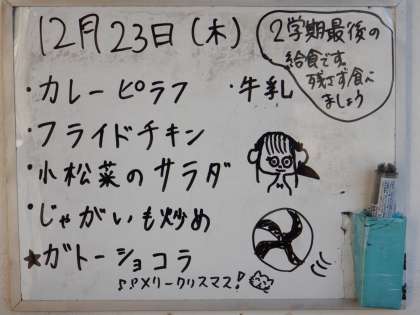 12月23日(木)
2学期最後の
給食です。
残さず食べ
ましょう
・カレーピラフ ・牛乳
・フライドチキン
・小松菜のサラダ
・じゃがいも炒め
★ガトーショコラ
♪♪メリークリスマス!